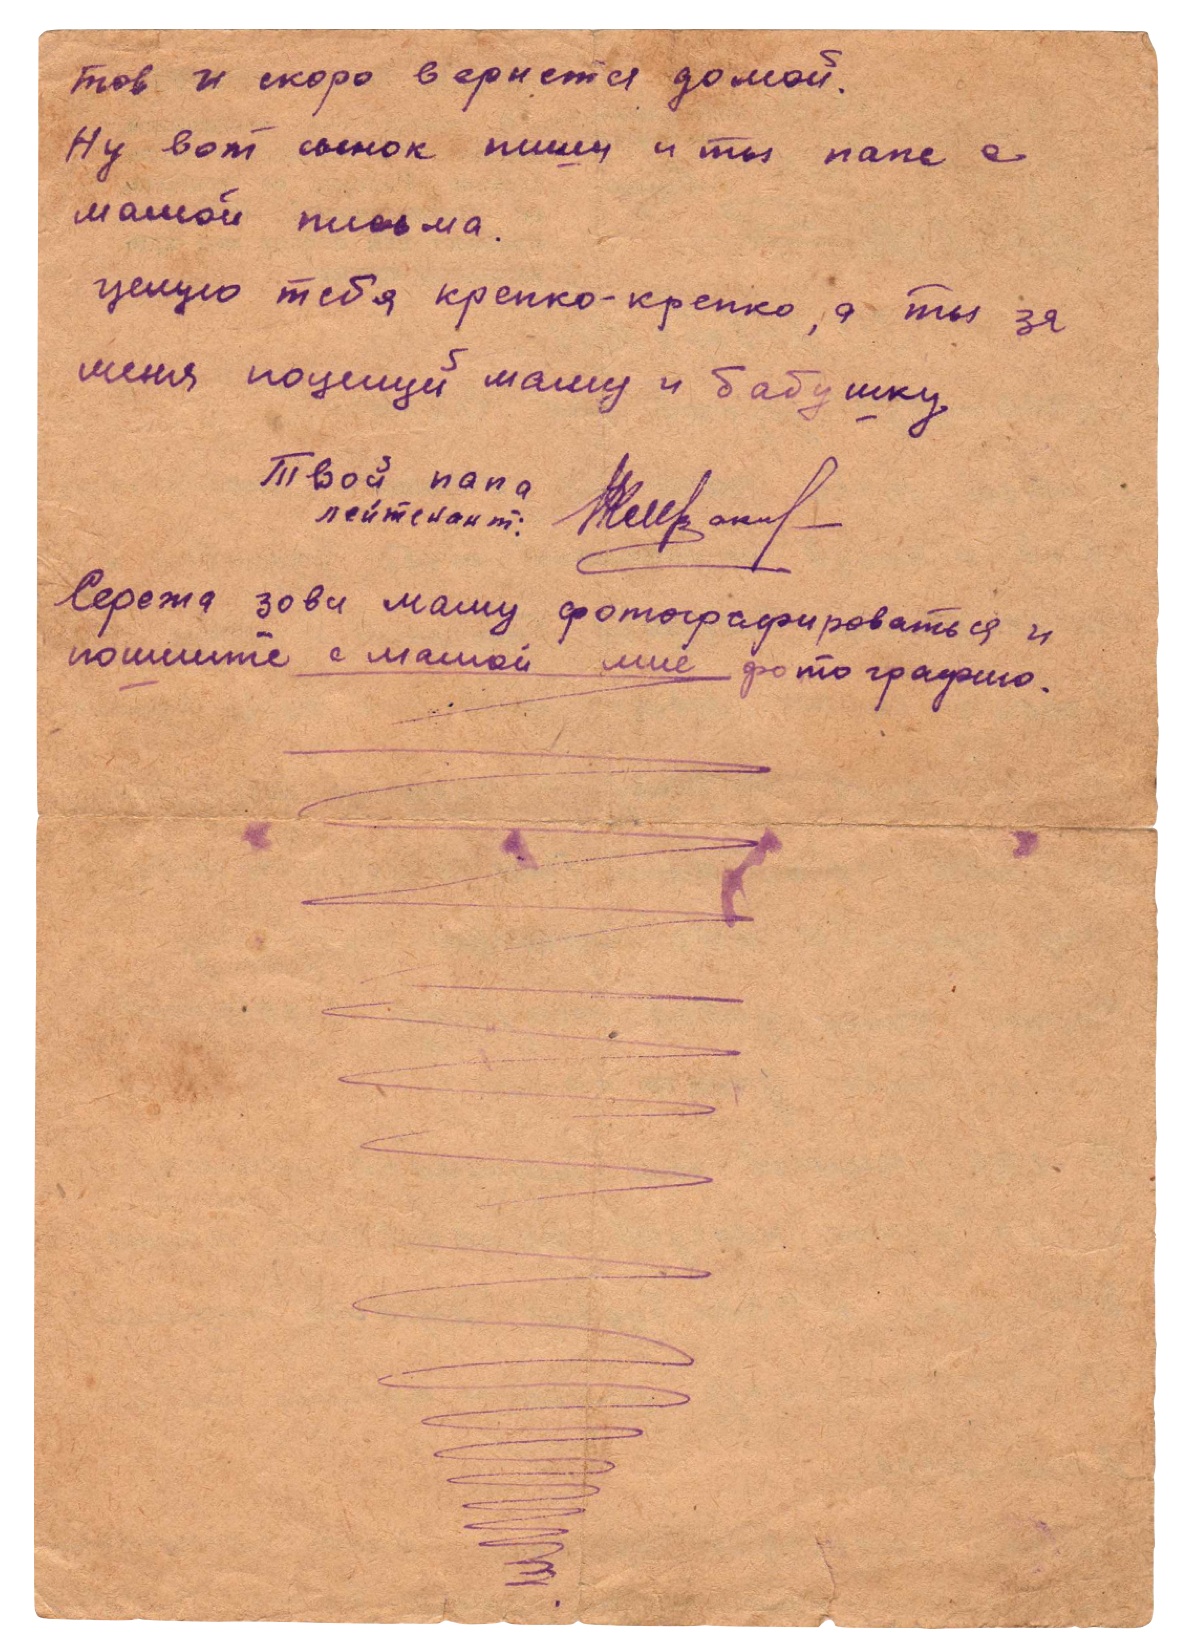 тов и скоро вернется домой.
Ну вот сынок пиши и ты папе с
мамой письма.
целую тебя крепко-крепко, а ты за
меня поцелуй маму и бабушку
Твой папа
лейтенант:
Сережа зови маму фотографироваться и
пошлите с мамой мне фотографию.